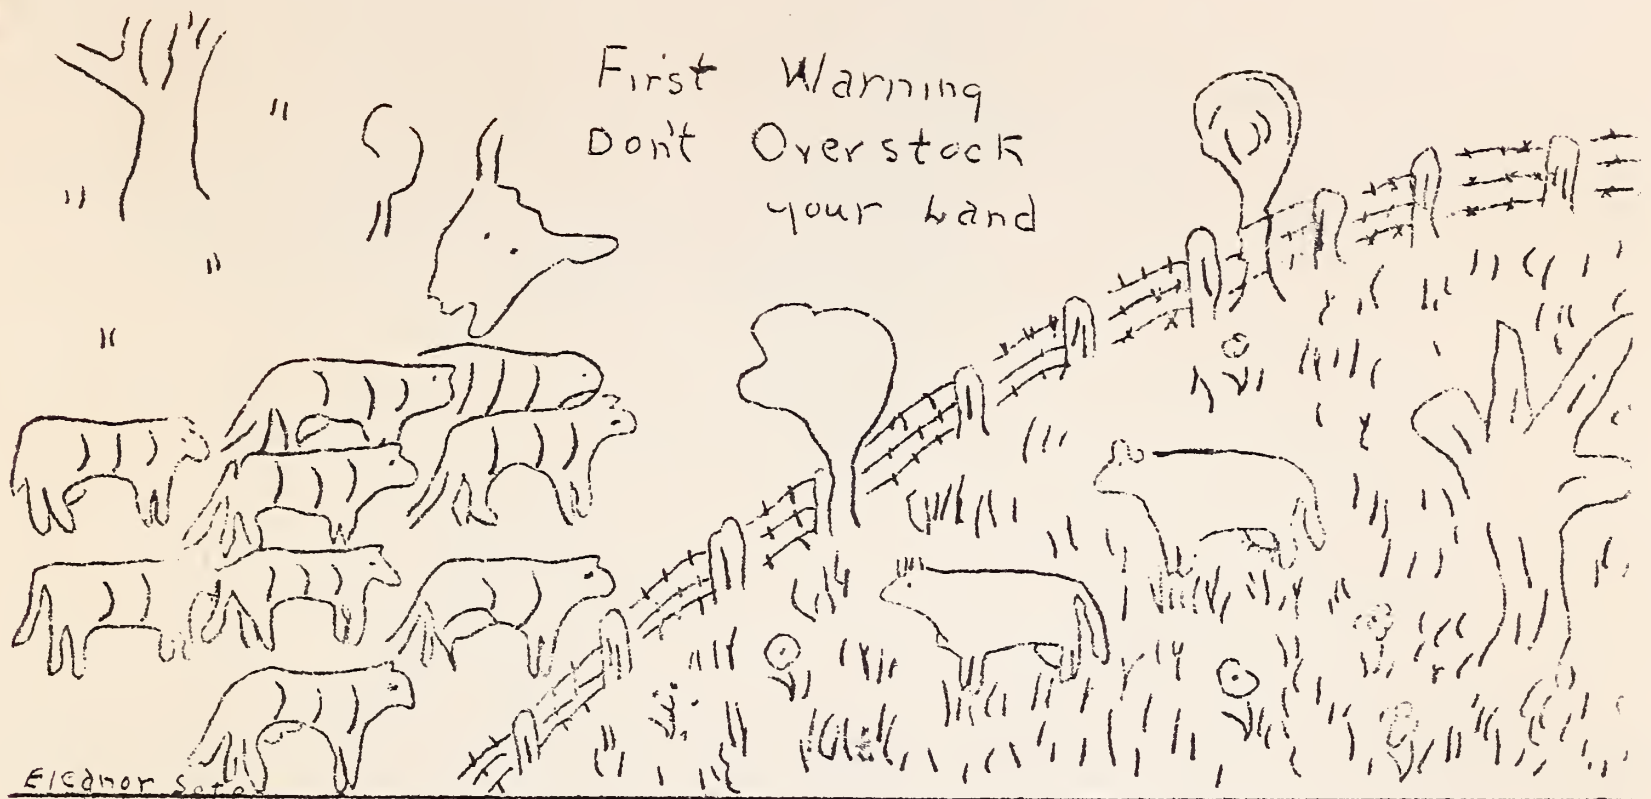 First Warning
Don't Overstock
your Land
Eleanor Soto